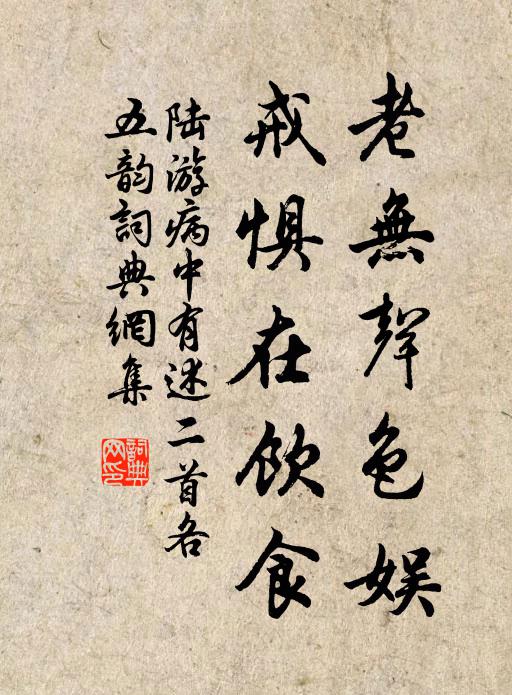 老無聲色娱
戒惧在飲食
陆游病中有述二首各
五韵詞典網集
詞典网印